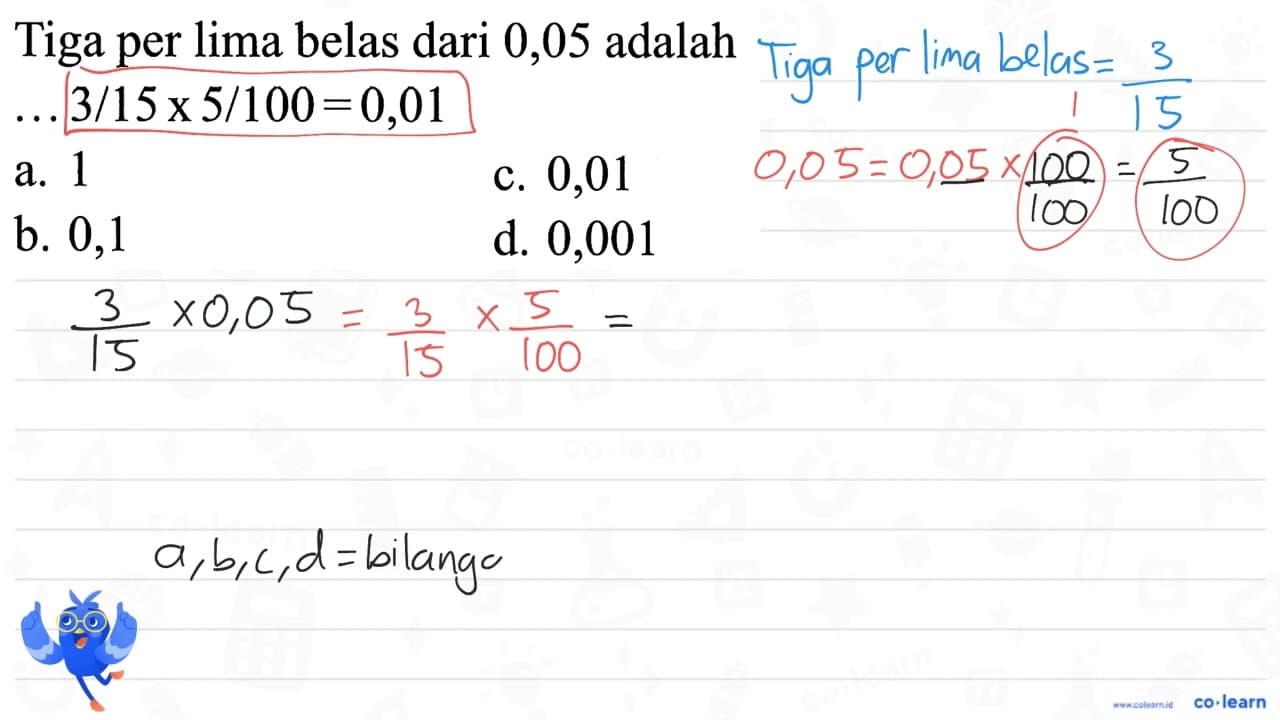 Tiga per lima belas dari 0,05 adalah
... 3/15 x 5/100 = 0,01
a. 1
c. 0,01
b. 0,1
d. 0,001
Tiga per lima belas = 3/15
1
0,05 = 0,05 × 100/100 = 5/100
3/15 × 0,05 = 3/15 × 5/100 =
a, b, c, d = bilanga
co·learn
www.colearn.id co·learn